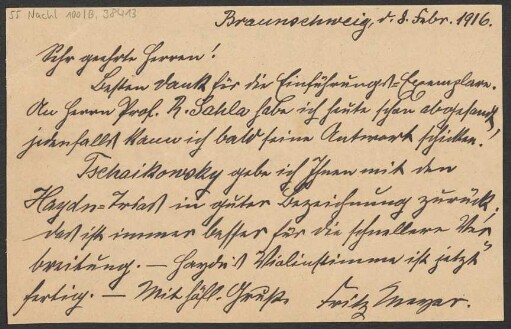 55 Nachl 100/B, J8413
Braunschweig, d. 8. Febr. 1916.
Sehr geehrte Herren!
Besten Dank für die Einführungs=Exemplare.
An Herrn Prof. R. Sahla habe ich heute schon abgesandt,
jedenfalls kann ich bald seine Antwort schicken!
Tschaikowsky gebe ich Ihnen mit den
Haydn=Trios in guter Bezeichnung zurück,
das ist immer besser für die schnellere Ver
breitung. — Haydn's Violinstimme ist jetzt
fertig. — Mit höfl. Gruß. Fritz Meyer.